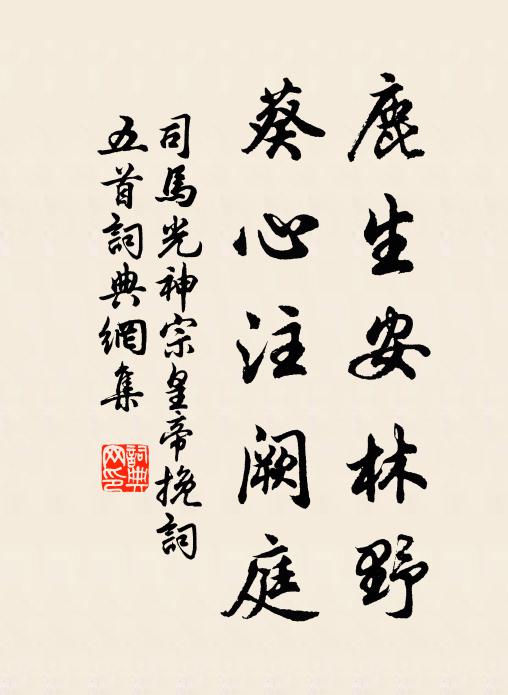 鹿生安林野
葵心注阙庭
司馬光神宗皇帝挽詞
五首詞典網集
詞典網印